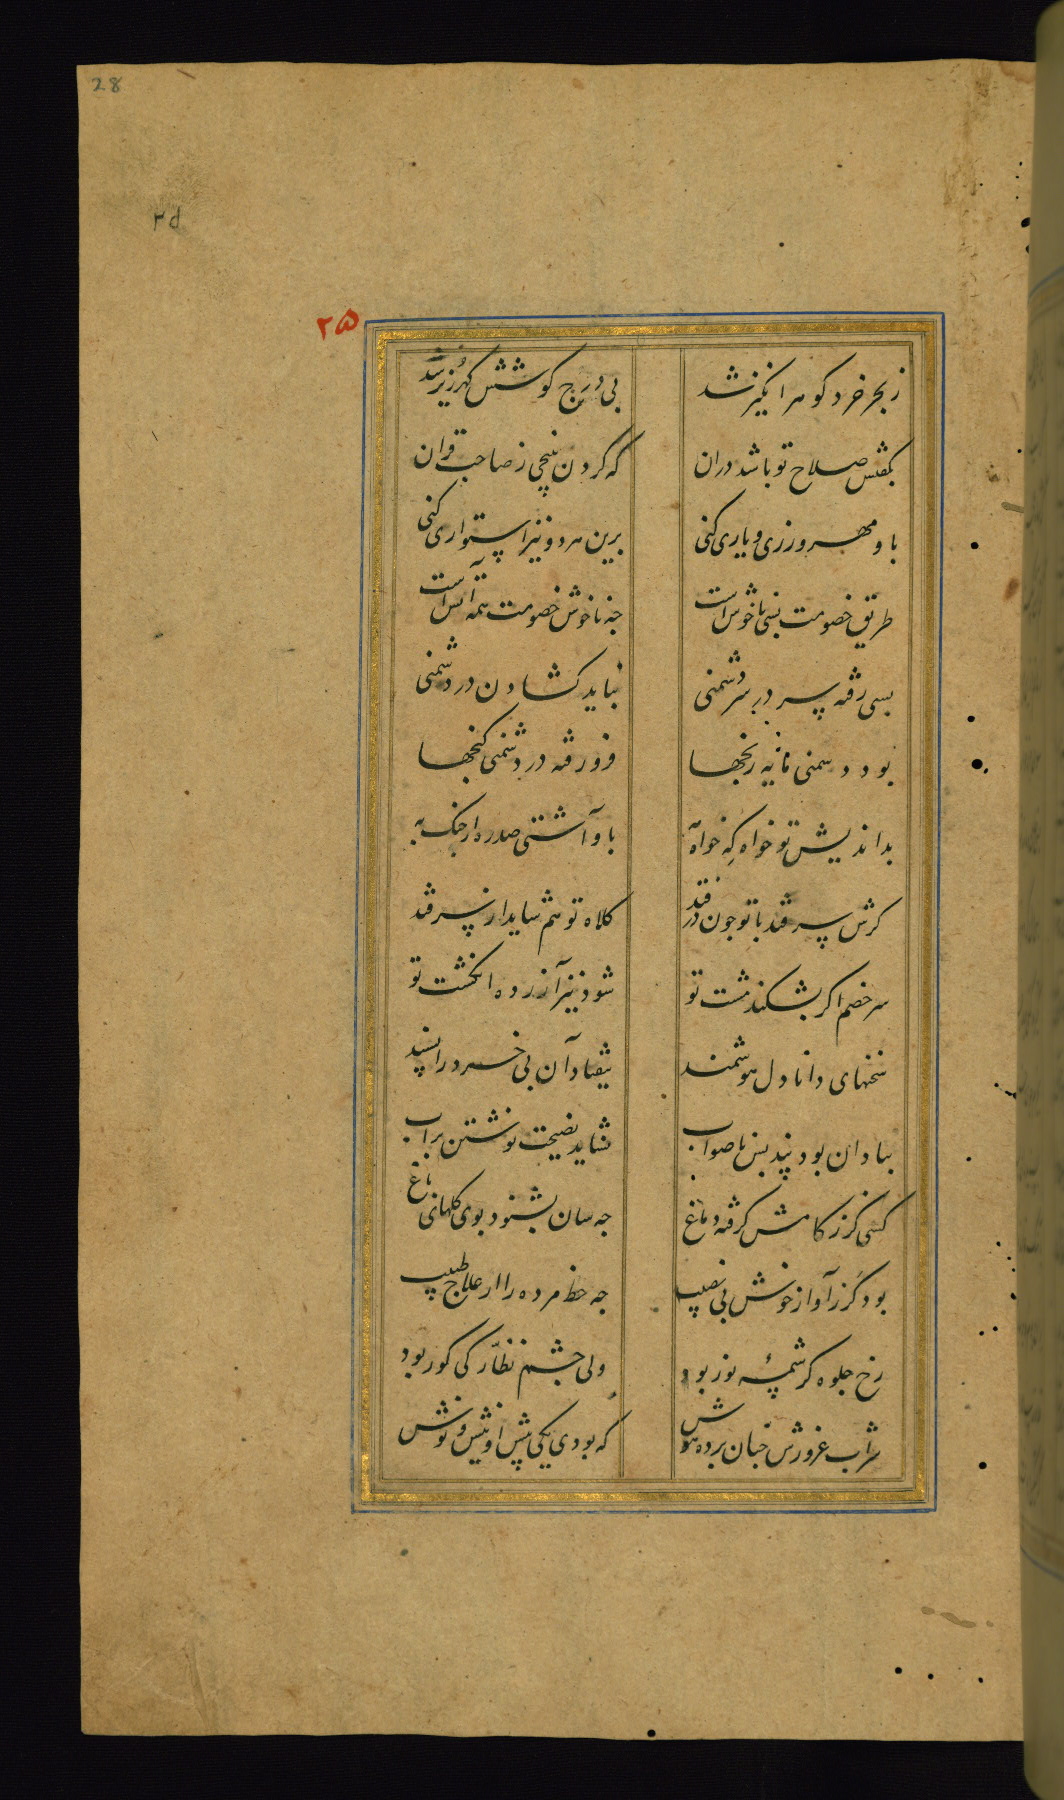 28
۲۵
۲۵
ز بحر خرد گوهر انگیز شد
بی درج گوشش گهرریز شد
بگفتش صلاح تو باشد دران
که گردن نپیچی ز صاحب قران
با و مهرورزی و یاری کنی
برین هر دو نیز استواری کنی
طریق خصومت بسی ناخوش است
چه ناخوش خصومت همه آتش است
بسی رفته سر در سر دشمنی
نباید گشادن در دشمنی
بود دشمنی مایه رنجها
فرو رفته در دشمنی گنجها
بداندیش تو خواه که خواه مه
با و آشتی صد ره از جنگ به
گرش سر فتد با تو چون در فتد
کلاه تو هم شاید از سر فتد
سر خصم اگر بشکند مشت تو
شود نیز آزرده انگشت تو
سخنهای دانا دل هوشمند
نیفتاد آن بی خرد را پسند
بنادان بود پند بس ناصواب
نشاید نصیحت نوشتن بر آب
کسی کز زکامش گرفته دماغ
چه سان بشنود بوی گلهای باغ
بود کر ز آواز خوش بی نصیب
چه حظ مرده را از علاج طبیب
رخ جلوه گر چشمه نور بود
ولی چشم نظارگی کور بود
شراب غرورش چنان برده هوش
که بودی یکی پیش او نیش و نوش